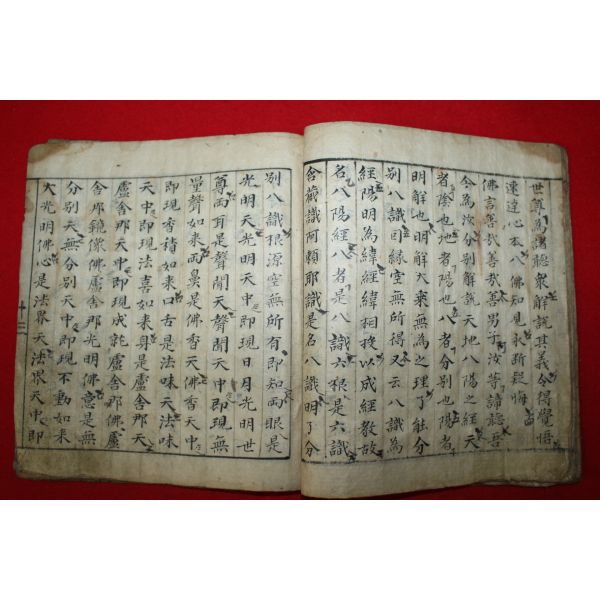 世尊為諸聽衆解說其義令得覺悟
速達心本入佛知見永斷疑悔
佛言善哉善哉善男子汝等諦聽吾
今為汝分別解說天地八陽之經天
者陰也地者陽也八者分別也陽者
明解也明解大乘無為之理了能分
別八識因緣空無所得又云八識為
經陽明為緯經緯相投以成經敎故
名八陽經八者是八識六根是六識
含藏識阿賴耶識是名八識明了分
別八識根源空無所有即知兩眼是
光明天光明天中即現日月光明世
尊兩耳是聲聞天聲聞天中即現無
量聲如来兩鼻是佛香天佛香天中
即現香積如来口舌是法味天法味
天中即現法喜如来身是盧舍那天
盧舍那天中即現成就盧舍那佛盧
舍那鏡像佛盧舍那光明佛意是無
分別天無分別天中即現不動如来
大光明佛心是法界天法界天中即
十三